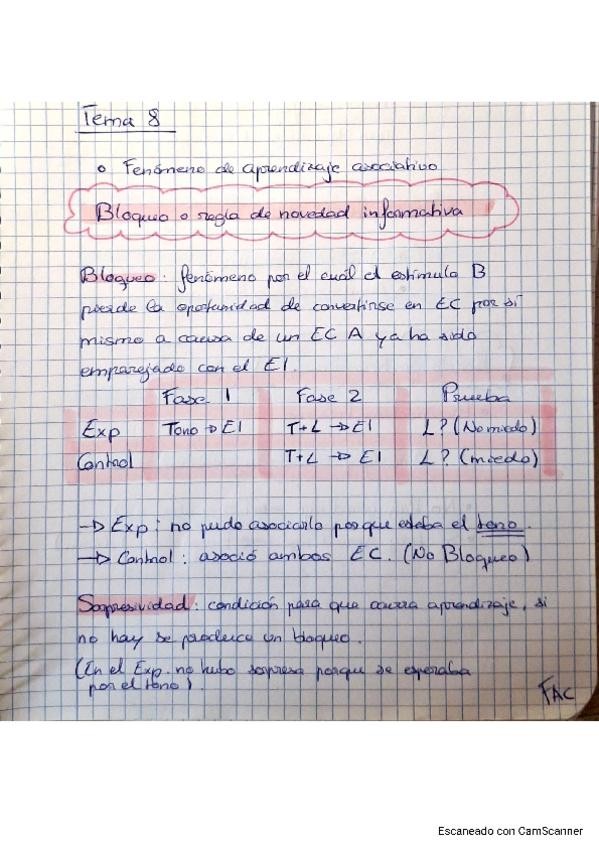 Tema 8
o Fenómeno de aprendizaje asociativo
Bloqueo o regla de novedad informativa
Bloqueo: fenómeno por el cuál el estímulo B
pierde la oportunidad de convertirse en EC por sí
mismo a causa de un EC A ya ha sido
emparejado con el EI.
Fase 1 Fase 2 Prueba
Exp Tono → EI T+L → EI L? (No miedo)
Control T+L → EI L? (miedo)
→ Exp: no pudo asociarlo porque estaba el tono.
→ Control: asoció ambos EC. (No Bloqueo)
Sorpresividad: condición para que ocurra aprendizaje, si
no hay se produce un bloqueo.
(En el Exp. no hubo sorpresa porque se esperaba
por el tono).
FAC
Escaneado con CamScanner